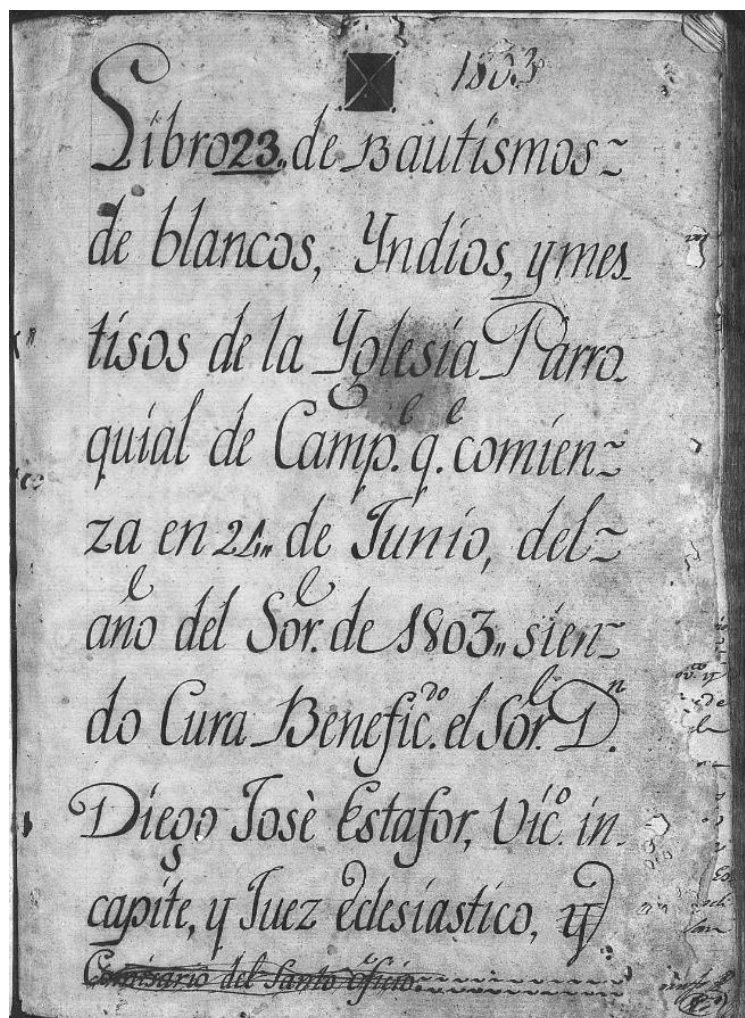 1803
Libro 23,, de Bautismos~
de blancos, Yndios, y mes
tisos de la Yglesia Parro
quial de Camp.e q.e comien~
za en 21,, de Junio, del~
año del Sor. de 1803,, sien~
do Cura Benefic.do el Sor. D.n
Diego Josè Estafor, Vic.o in
capite, y Juez Eclesiastico, y
Comisario del Santo Oficio.